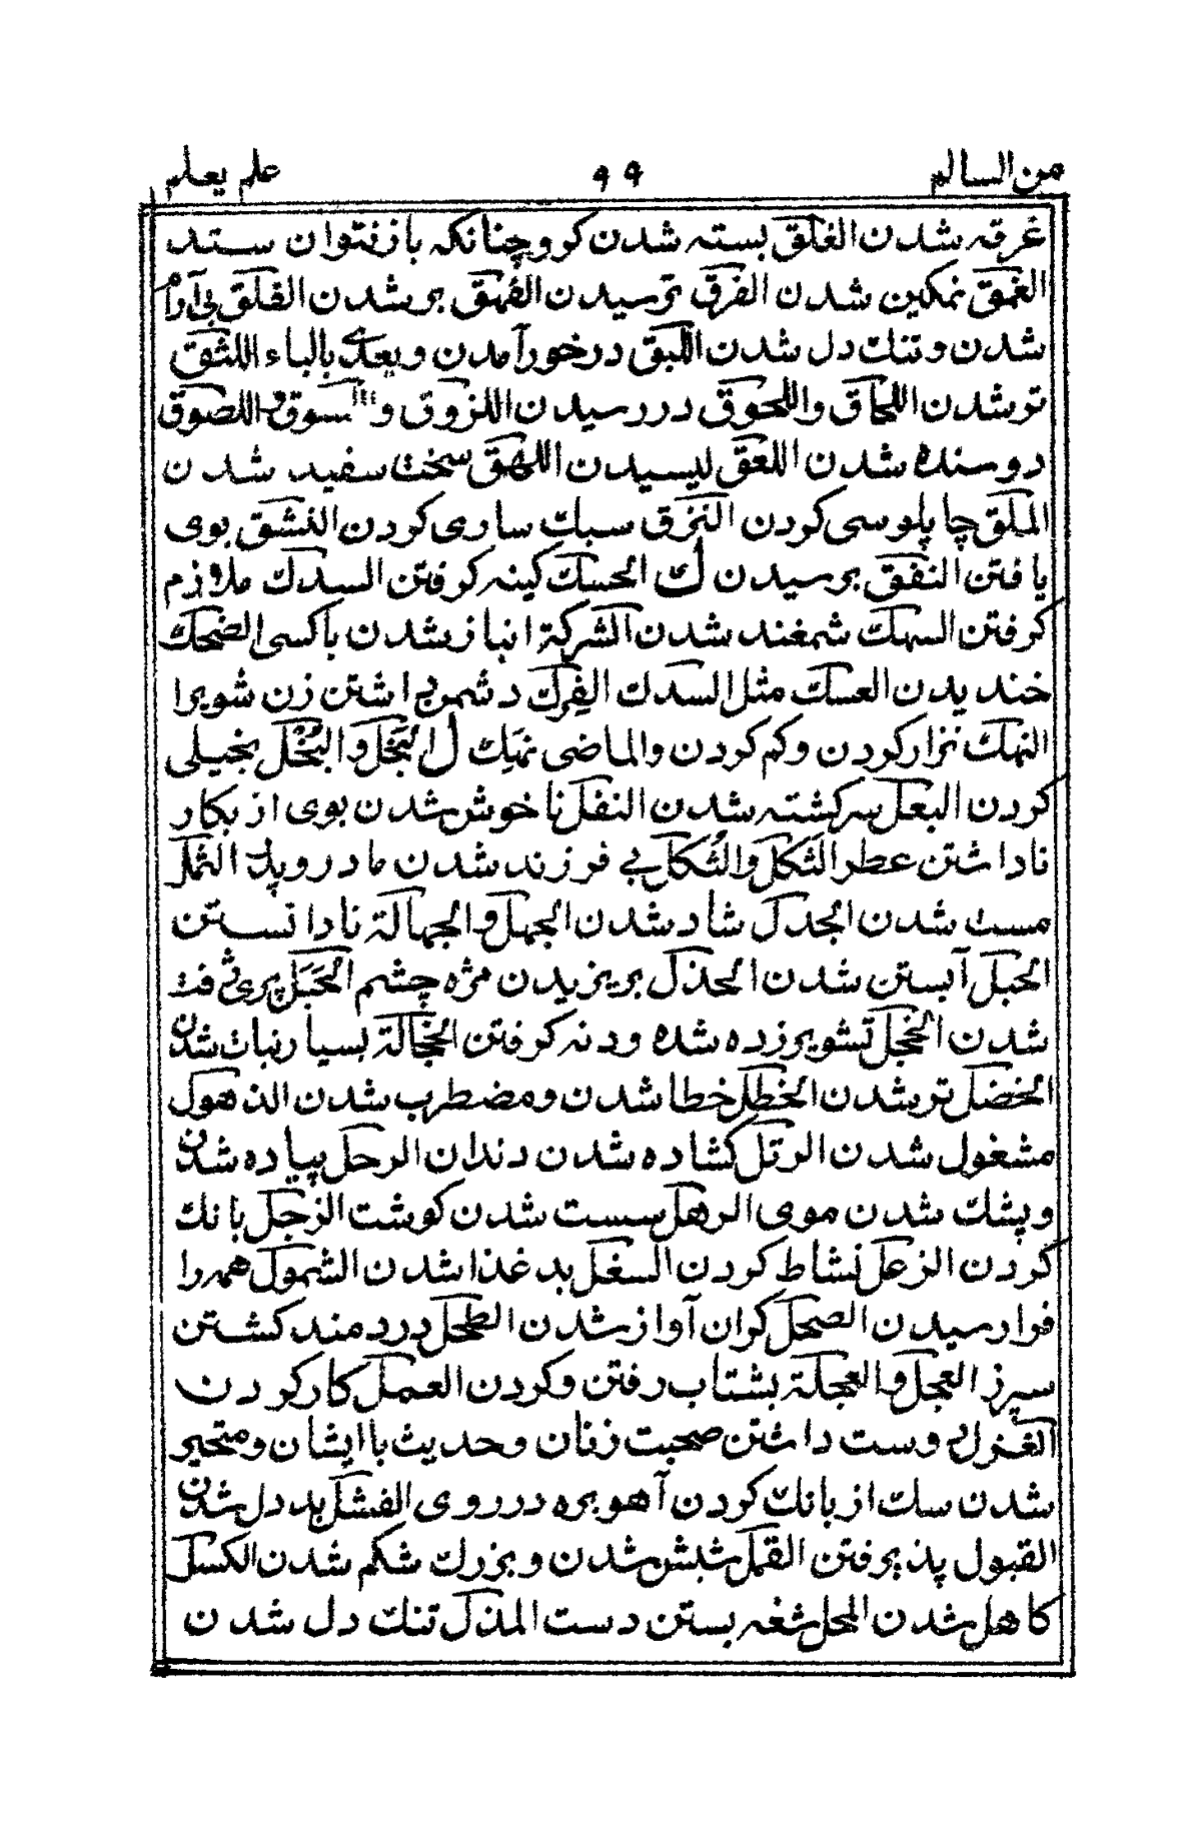 من السالم ۹۹ علم یعلم
غرقه شدن الغلق بسته شدن کرو چنانکه باز نتوان ستد
الغمق نمکین شدن الفرق ترسیدن الفهق برشدن القلق بی آرام
شدن و تنك دل شدن اللبق درخور آمدن ویعدی بالباء اللثق
تر شدن اللحاق واللحوق در رسیدن اللزوق و السوق واللصوق
دوسنده شدن اللعق لیسیدن اللهق سخت سفید شدن
الملق چاپلوسی کردن النزق سبك ساری کردن النشق بوی
یافتن النفق برسیدن ك الحسك کینه کرفتن السدك ملازم
کرفتن السهك شمغند شدن الشرکة انباز شدن باکسی الضحك
خندیدن العسك مثل السدك الفرك دشمن داشتن زن شویرا
النهك نزار کردن وکم کردن والماضی نهك ل البخل والبخل بخیلی
کردن البعل سرکشته شدن التفل ناخوش شدن بوی از بکار
ناداشتن عطر الثکل والثکل بی فرزند شدن مادر و پدر الثمل
مست شدن الجذل شاد شدن الجهل والجهالة نادانستن
الحبل آبستن شدن الحذل بریزیدن مژه چشم الخبل پری کرفته
شدن الخجل تشویر زده شده ودنه کرفتن الخجالة بسیار نبات شدن
الخضل تر شدن الخطل خطا شدن ومضطرب شدن الذهول
مشغول شدن الرتل کشاده شدن دندان الرجل پیاده شدن
وپشك شدن موی الرهل سست شدن کوشت الزجل بانك
کردن الزعل نشاط کردن السغل بد غذا شدن الشمول همه را
فرارسیدن الصحل کران آواز شدن الطحل دردمند کشتن
سپرز العجل والعجلة بشتاب رفتن وکردن العمل کار کردن
الغزل دوست داشتن صحبت زنان وحدیث با ایشان ومتحیر
شدن سك از بانك کردن آهو بره در روی الفشل بد دل شدن
القبول پذیرفتن القمل شبش شدن وبزرك شکم شدن الکسل
کاهل شدن المجل شغه بستن دست المذل تنك دل شدن